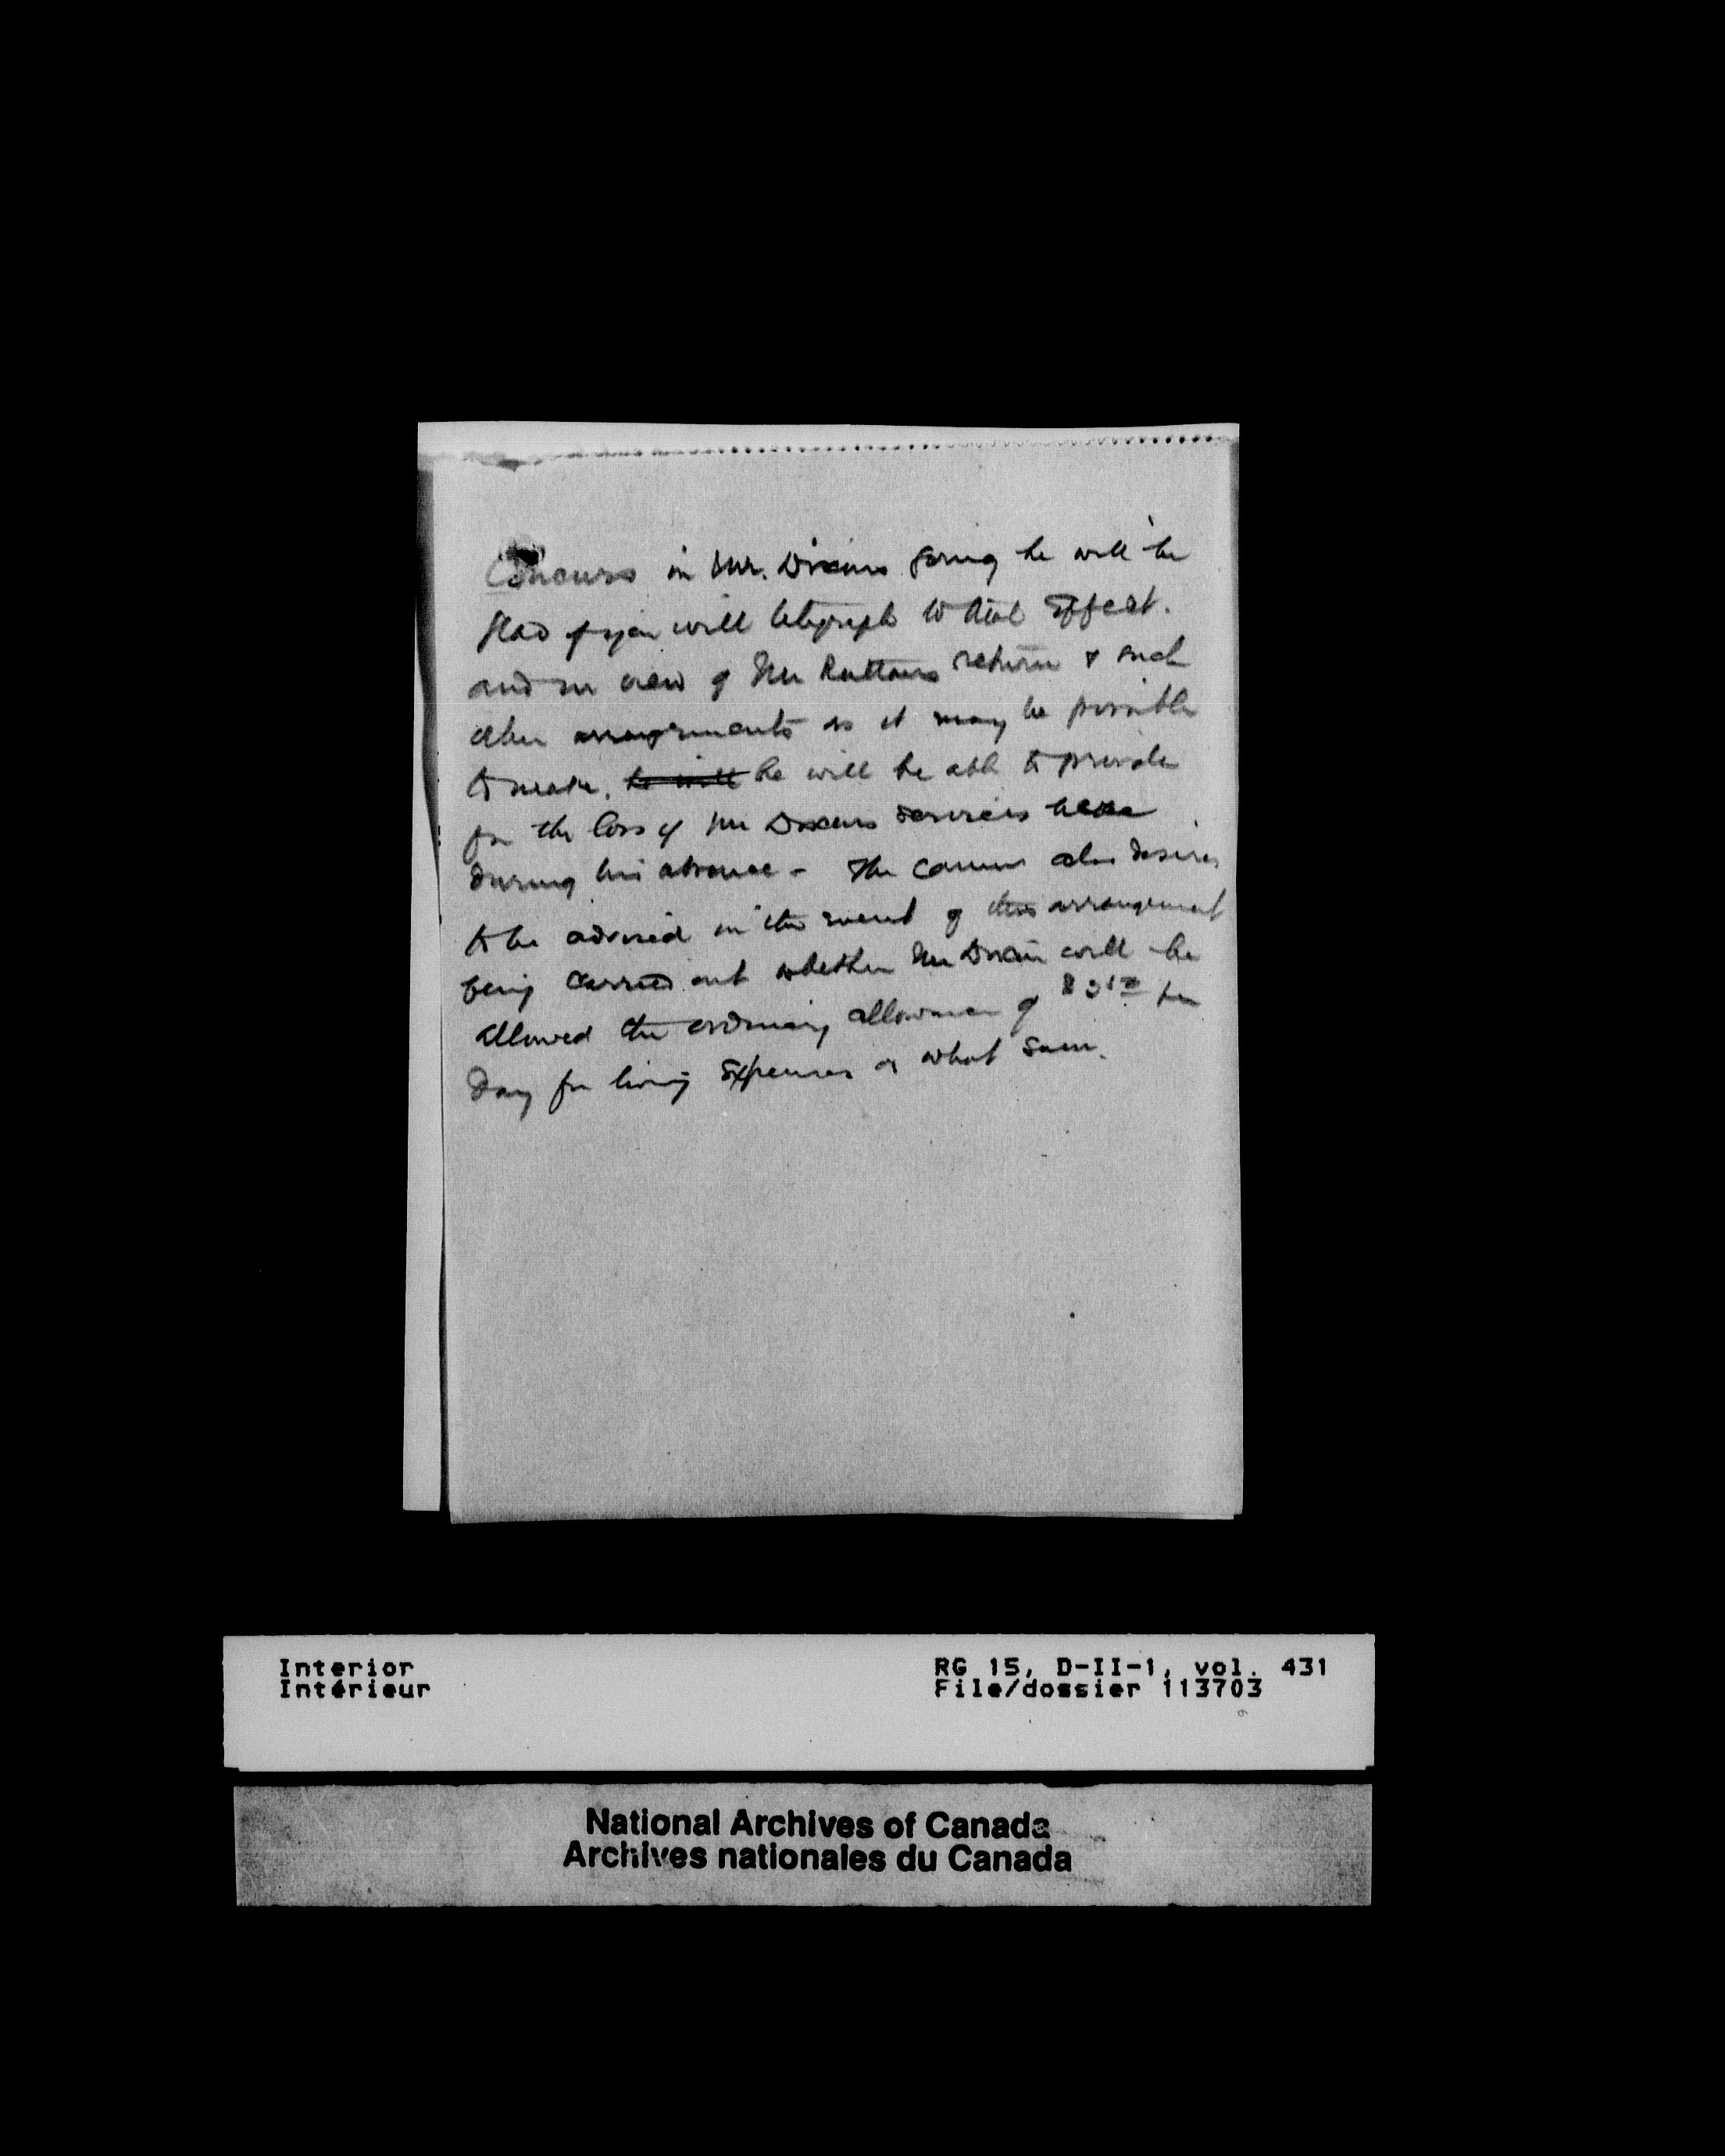 Concurs in Mr. Dixons going he will be
glad if you will telegraph to that effect.
and in view of Mr Ruttans return & such
other arrangements as it may be possible
to make. he will he will be able to provide
for the loss of Mr Dixons services here
during his absence - The Commr also desires
to be advised in the event of this arrangement
being carried out whether Mr Dixon will be
allowed the ordinary allowance of per
day for living expenses or what sum.
Interior
Intérieur
RG 15, D-II-1, vol. 431
File/dossier 113703
National Archives of Canada
Archives nationales du Canada